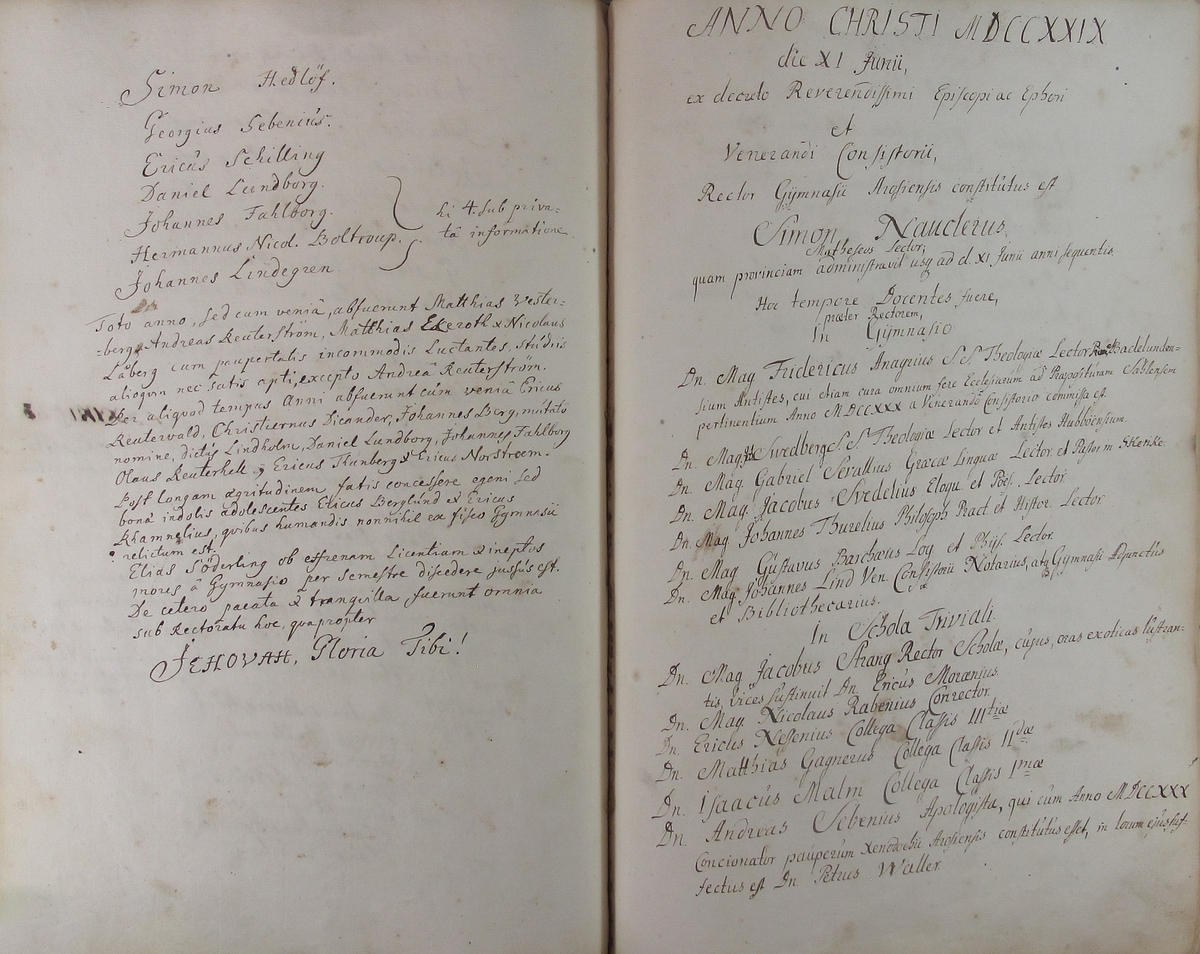 Simon Hedlöf.
Georgius Sebenius.
Ericus Schilling
Daniel Lundborg.
Johannes Fahlborg.
Hermannus Nicol. Boltroup.
Johannes Lindegren
hi 4. sub priva=
tâ informatione
Toto anno, sed cum veniâ, abfuerunt Matthias Wester=
=berg, Andreas Reuterström, Matthias Ekeroth & Nicolaus
Låberg cum paupertatis incommodis Luctantes, studiis
alioqvin nec satis apti, excepto Andreâ Reuterström.
Per aliquod tempus Anni abfuerunt cum veniâ Ericus
Reuterwald, Christiernus Dicander, Johannes Berg, mutato
nomine, dictus Lindholm, Daniel Lundborg, Johannes Fahlborg
Olaus Reuterhell, Ericus Thunberg & Ericus Norstreem.
Post longam ægritudinem fatis concessere egeni sed
bonæ indolis adolescentes Ericus Berglund et Ericus
Rhamnelius, qvibus humandis nonnihil ex fisco Gymnasii
relictum est.
Elias Söderling ob effrenam Licentiam & ineptos
mores â Gymnasio per semestre discedere jussus est.
De cetero pacata & tranqvilla fuerunt omnia
sub Rectoratu hoc, qvapropter
JEHOVAH, Gloria Tibi!
ANNO CHRISTI MDCCXXIX
die XI Junii,
ex decreto Reverendissimi Episcopi ac Ephori
et
Venerandi Consistorii,
Rector Gymnasii Arosiensis constitutus est
Simon Nauclerus,
Matheseos Lector,
quam provinciam administravit usq ad d. XI Junii anni sequentis.
Hoc tempore Docentes fuere,
præter Rectorem,
In Gymnasio
Dn. Mag Fridericus Anagrius S S Theologiæ Lector Badelunden=
sium Antistes, cui etiam cura omnium fere Ecclesiarum ad Præposituram Sahlensem
pertinentium Anno MDCCXXX a Venerando Consistorio commissa est.
Dn. Mag Swedberg S. S Theologiæ Lector et Antistes Hubboënsium.
Dn. Mag. Gabriel Serallius Græcæ Linguæ Lector et Pastor in Skenke.
Dn. Mag. Jacobus Svedelius Eloqu et Poës. Lector
Dn. Mag Johannes Thurelius Philosoph Pract et Histor. Lector
Dn. Mag Gustavus Barchæus Log et Phys. Lector.
Dn. Mag Johannes Lind Ven. Consistorii Notarius, atq Gymnasii Adjunctus
et Bibliothecarius.
In Schola Triviali.
Dn. Mag Jacobus Strang Rector Scholæ, cujus, oras exoticas lustran-
tis, vices sustinuit Dn. Ericus Morænius.
Dn. Mag. Nicolaus Rabenius Conrector.
Dn. Ericus Nesenius Collega Classis IIItiæ
Dn. Matthias Gagnerus Collega Classis IIdæ
Dn. Isaacus Malm Collega Classis Imæ
Dn. Andreas Sebenius Apologista, qui cum Anno MDCCXXX
Concionator pauperum Xenodochii Arosiensis constitutus esset, in locum ejus suf-
fectus est Dn Petrus Waller.